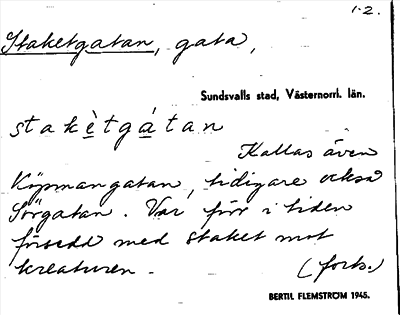 1-2.
Staketgatan, gata,
Sundsvalls stad, Västernorrl. län.
stakètgátan
Kallas även
Köpmangatan, tidigare också
Sörgatan. Var förr i tiden
försedd med staket mot
kreaturen.
(forts.)
BERTIL FLEMSTRÖM 1945.